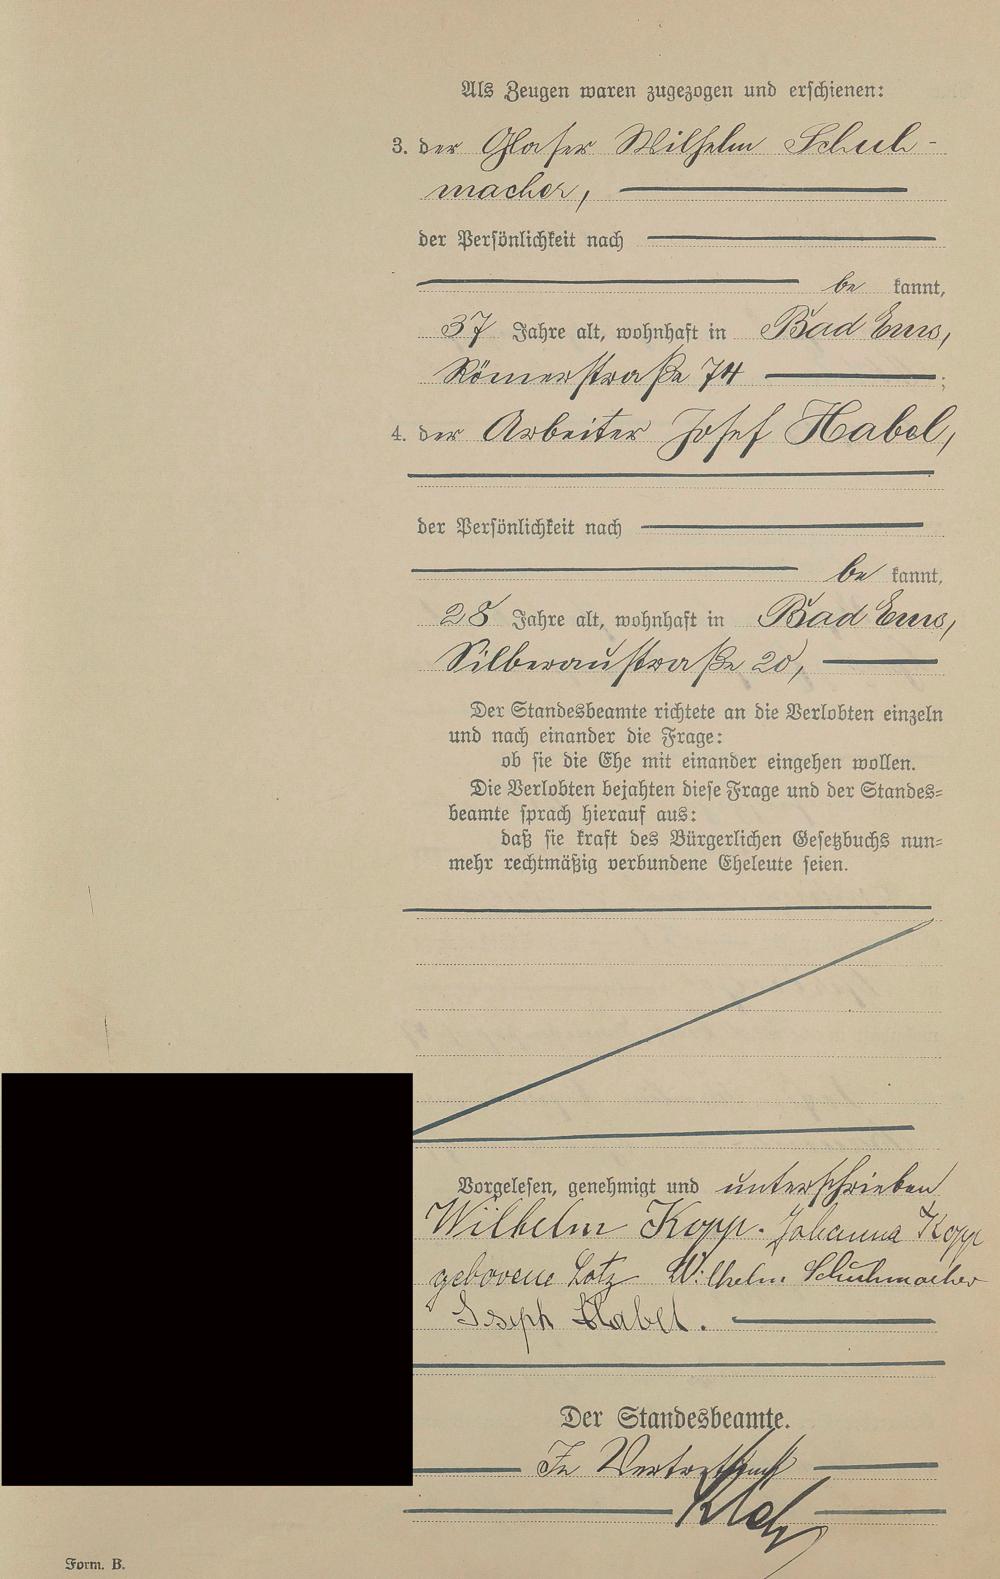 Als Zeugen waren zugezogen und erschienen:
3. der Glaser Wilhelm Schuh-
macher,
der Persönlichkeit nach
be kannt,
37 Jahre alt, wohnhaft in Bad Ems,
Römerstraße 74 ;
4. der Arbeiter Josef Habel,
der Persönlichkeit nach
be kannt,
28 Jahre alt, wohnhaft in Bad Ems,
Silberaustraße 20,
Der Standesbeamte richtete an die Verlobten einzeln
und nach einander die Frage:
ob sie die Ehe mit einander eingehen wollen.
Die Verlobten bejahten diese Frage und der Standes-
beamte sprach hierauf aus:
daß sie kraft des Bürgerlichen Gesetzbuchs nun-
mehr rechtmäßig verbundene Eheleute seien.
Vorgelesen, genehmigt und unterschrieben
Wilhelm Kopp. Johanna Kopp
geborene Lotz Wilhelm Schuhmacher
Joseph Habel.
Der Standesbeamte.
In Vertretung
Form. B.